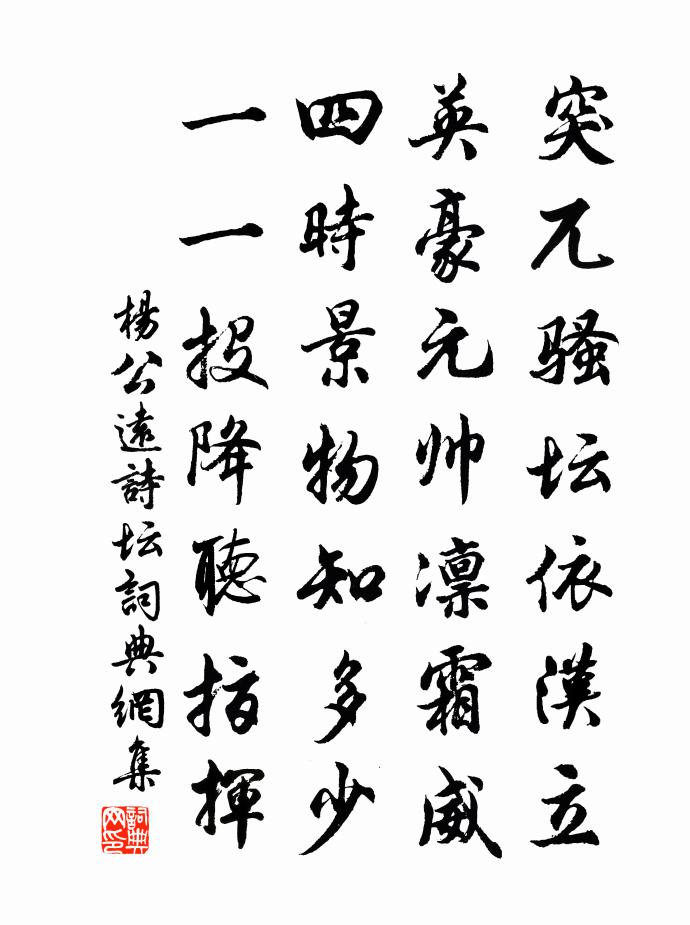 突兀骚坛依漢立
英豪元帅凛霜威
四時景物知多少
一一投降聽指揮
楊公遠詩坛詞典網集
詞典网印